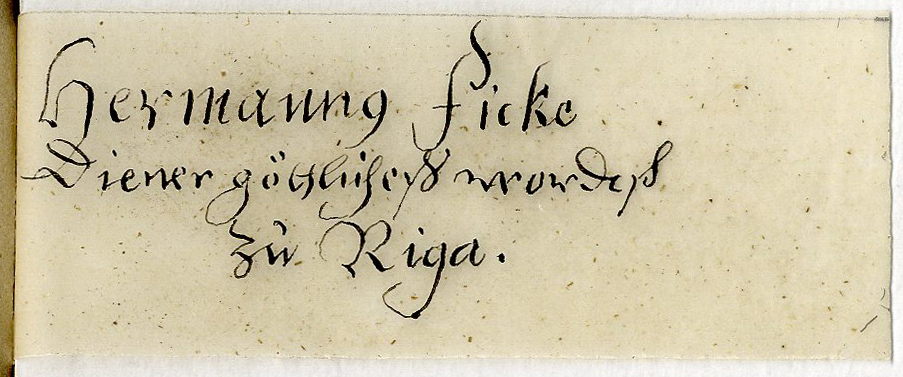 Hermannꝰ Ficke
Diener götlicheß wordeß
zů Riga.